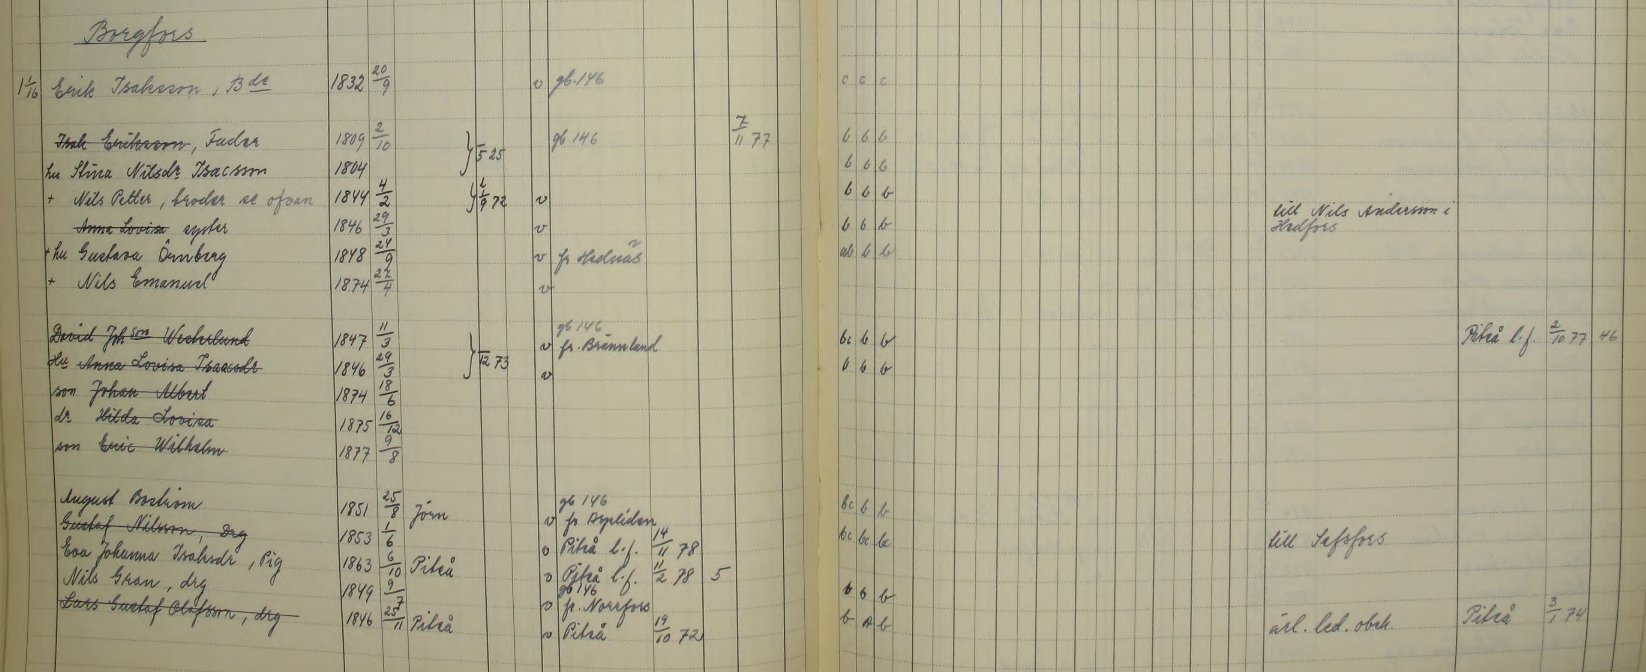 Borgfors
1/16 Erik Isaksson, Bde 1832 20/9 v gb. 146 c c c
Isak Eriksson, Fader 1809 2/10 } 5 25 gb 146 7/11 77 b b b
hu Stina Nilsdr Isacsson 1804 b b b
+ Nils Petter, broder se ofvan 1844 4/2 } 9 72 v b b b
Anna Lovisa syster 1846 29/3 v b b b till Nils Andersson i Hedfors
+ hu Gustava Örnberg 1848 24/9 v fr Hednäs ab b b
+ Nils Emanuel 1874 24/4 v
gb 146
David Johson Westerlund 1847 11/3 } 12 73 v fr. Brännland bc b b Piteå l.f. 2/10 77 46
Hu Anna Lovisa Isaacsdr 1846 29/3 v b b b
son Johan Albert 1874 18/6
dr Hilda Lovisa 1875 16/12
son Eric Wilhelm 1877 9/8
gb 146
August Boström 1851 25/8 Jörn v fr Aspliden bc b b
Gustaf Nilsson, Drg 1853 1/6 v Piteå l.f. 14/11 78 bc bc bc till Sefsfors
Eva Johanna Isaksdr, Pig 1863 6/10 Piteå v Piteå l.f. 11/2 78 5
gb 146
Nils Gran, drg 1849 9/7 v fr. Norrfors b b b
Lars Gustaf Olofsson, drg 1846 25/11 Piteå v Piteå 19/10 72 b A b ärl. led. obeh. Piteå 3/1 74